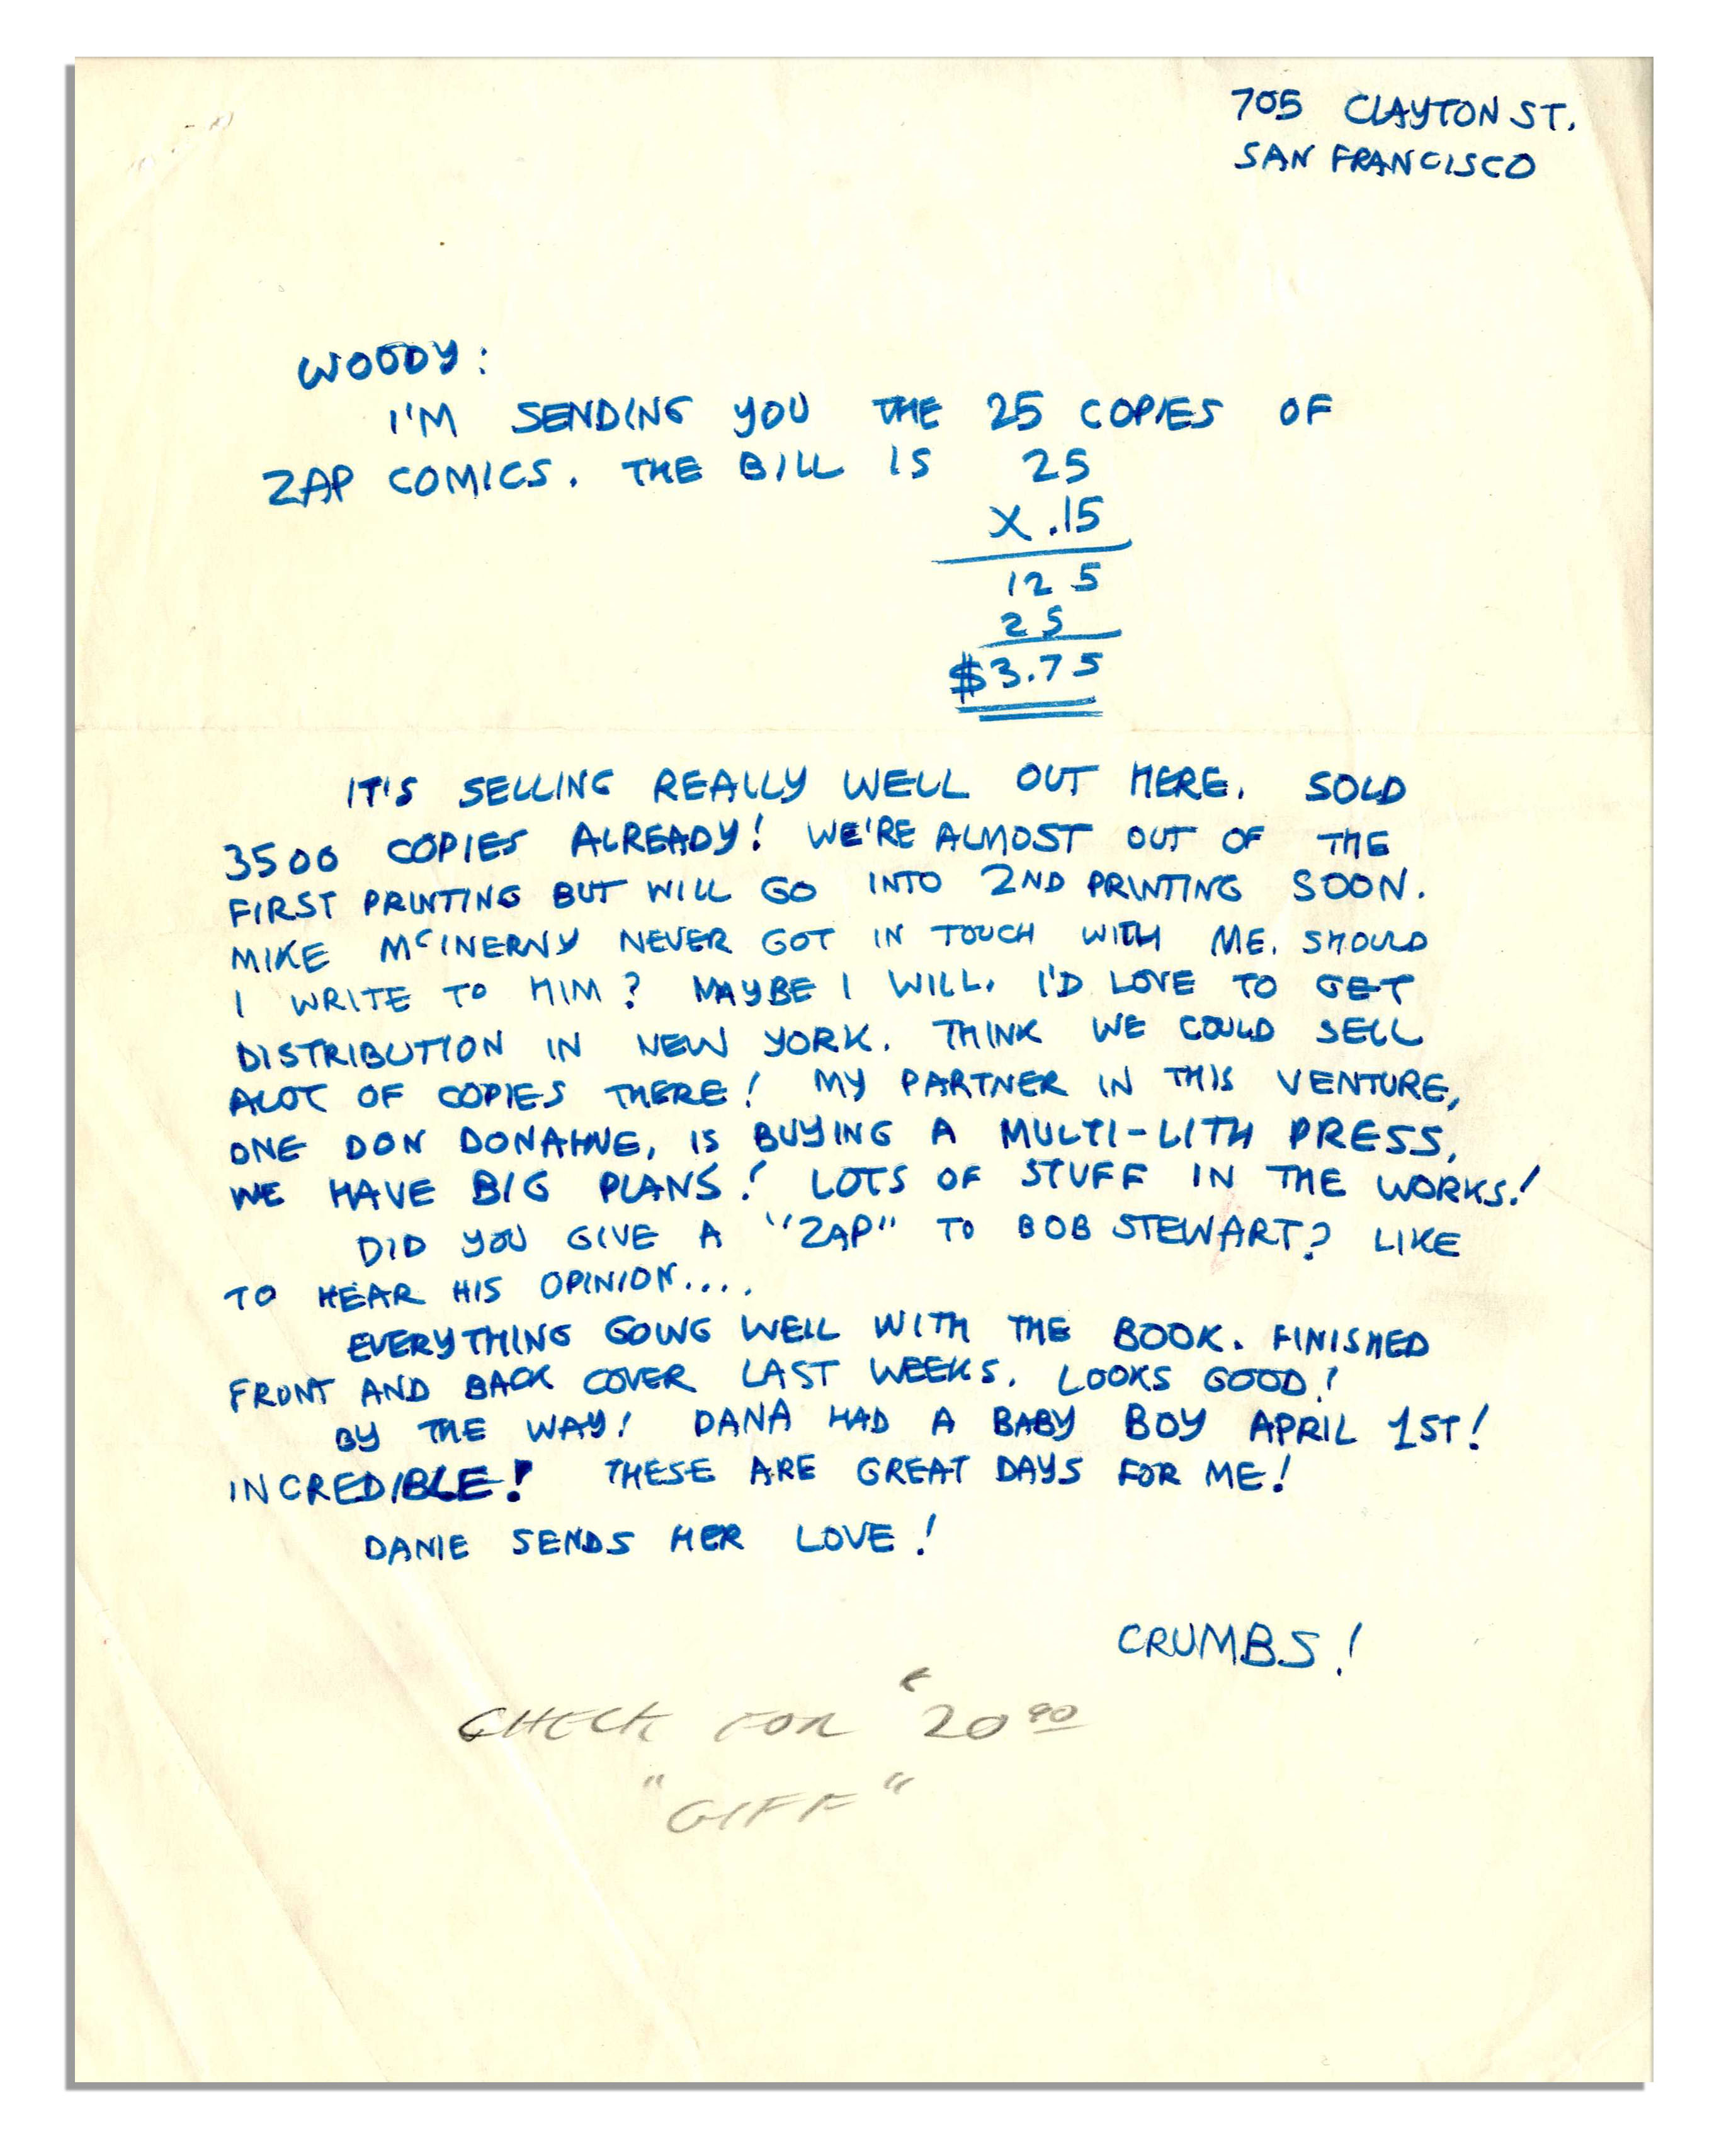 705 CLAYTON ST.
SAN FRANCISCO
WOODY:
I'M SENDING YOU THE 25 COPIES OF
ZAP COMICS. THE BILL IS 25
X .15
125
25
$3.75
IT'S SELLING REALLY WELL OUT HERE. SOLD
3500 COPIES ALREADY! WE'RE ALMOST OUT OF THE
FIRST PRINTING BUT WILL GO INTO 2ND PRINTING SOON.
MIKE McINERNY NEVER GOT IN TOUCH WITH ME. SHOULD
I WRITE TO HIM? MAYBE I WILL. I'D LOVE TO GET
DISTRIBUTION IN NEW YORK. THINK WE COULD SELL
ALOT OF COPIES THERE! MY PARTNER IN THIS VENTURE,
ONE DON DONAHUE, IS BUYING A MULTI-LITH PRESS,
WE HAVE BIG PLANS! LOTS OF STUFF IN THE WORKS!
DID YOU GIVE A "ZAP" TO BOB STEWART? LIKE
TO HEAR HIS OPINION....
EVERYTHING GOING WELL WITH THE BOOK. FINISHED
FRONT AND BACK COVER LAST WEEKS. LOOKS GOOD!
BY THE WAY! DANA HAD A BABY BOY APRIL 1ST!
INCREDIBLE! THESE ARE GREAT DAYS FOR ME!
DANIE SENDS HER LOVE!
CRUMBS!
CHECK FOR
"GIFF"